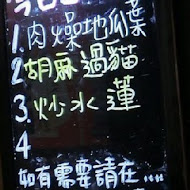 今日
1.肉燥地瓜葉
2.胡麻過貓
3.炒水蓮
4
如有需要請在....